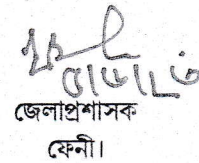 জেলাপ্রশাসক
ফেনী।